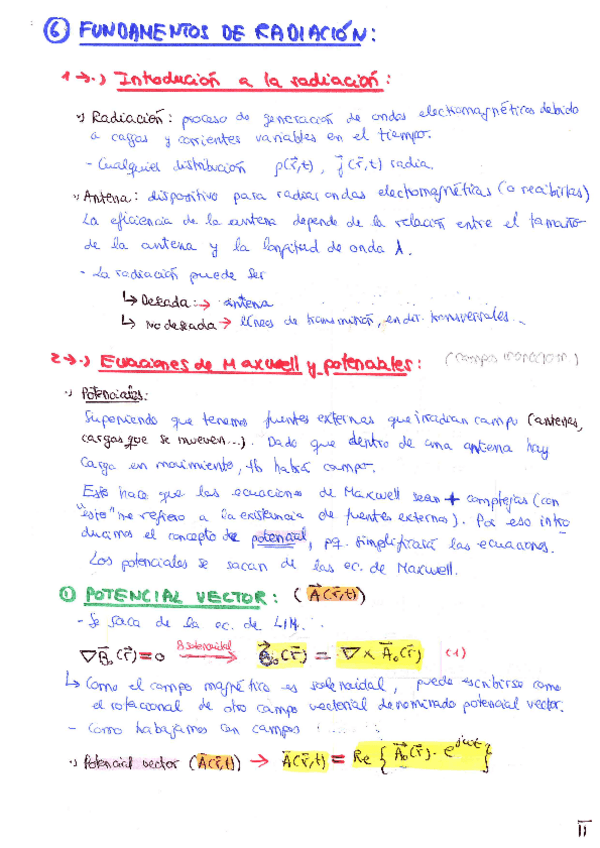 ⑥ FUNDAMENTOS DE RADIACIÓN:
1→·) Introdución a la radiación:
·) Radiación: proceso de generación de ondas electromagnéticas debido
a cargas y corrientes variables en el tiempo.
- Cualquier distribución ρ(r⃗,t), j⃗(r⃗,t) radia.
·) Antena: dispositivo para radiar ondas electromagnéticas (o recibirlas)
La eficiencia de la antena depende de la relación entre el tamaño
de la antena y la longitud de onda λ.
- La radiación puede ser
↳ Deseada: → antena
↳ No deseada → líneas de transmisión, transversales...
2→·) Ecuaciones de Maxwell y potenciales: (campos)
·) Potenciales:
Suponiendo que tenemos fuentes externas que irradian campo (antenas,
cargas que se mueven...). Dado que dentro de una antena hay
carga en movimiento, tb habrá campo.
Esto hace que las ecuaciones de Maxwell sean + complejas (con
"esto" me refiero a la existencia de fuentes externas). Por eso intro
ducimos el concepto de potencial, pq. simplificará las ecuaciones.
Los potenciales se sacan de las ec. de Maxwell.
① POTENCIAL VECTOR: (A⃗(r⃗,t))
- Se saca de la ec. de
∇B⃗₀(r⃗) = 0 B solenoidal → B⃗₀(r⃗) = ∇ × A⃗₀(r⃗) (1)
↳ Como el campo magnético es solenoidal, puede escribirse como
el rotacional de otro campo vectorial denominado potencial vector.
- Como trabajamos con campos
·) Potencial vector (A⃗(r⃗,t)) → A⃗(r⃗,t) = Re { A⃗₀(r⃗) · e^jωt }
11